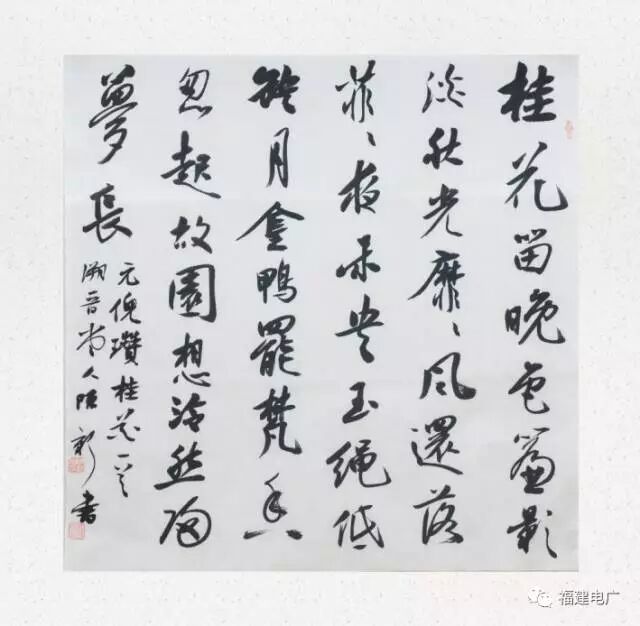 桂花留晚色簾影
淡秋光靡々風還落
菲々夜未央玉繩低
缺月金鴨罷焚香
忽起故園想泠然歸
夢長
元倪瓚桂花一首
音 人 書
福建电广